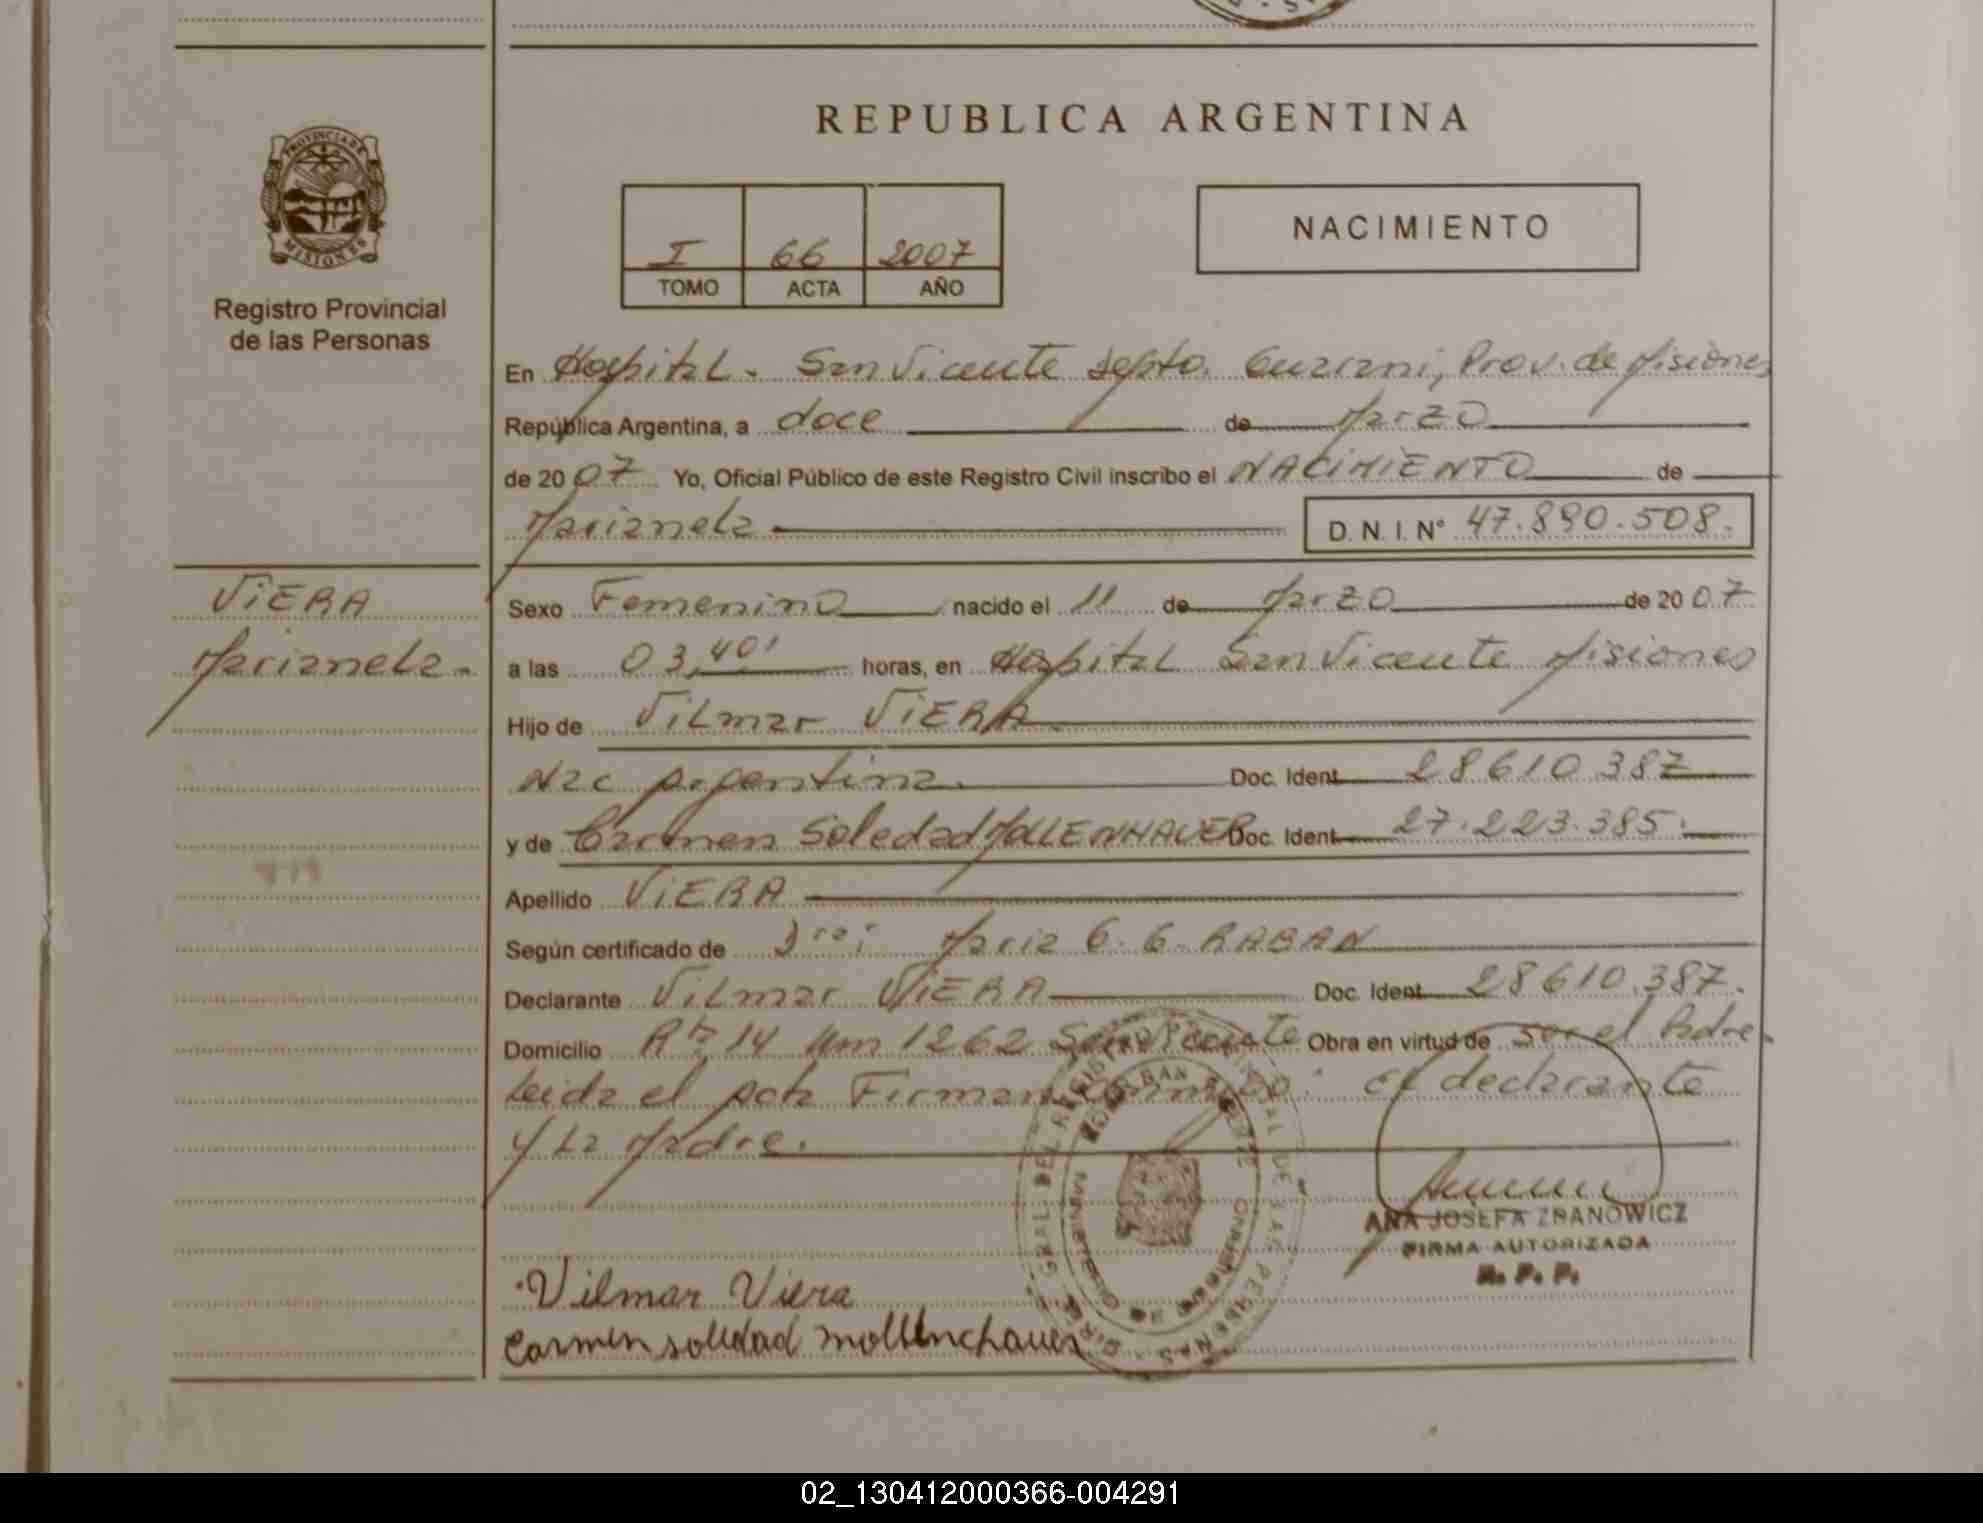 REPUBLICA ARGENTINA
PROVINCIA DE
MISIONES
Registro Provincial
de las Personas
I 66 2007
TOMO ACTA AÑO
NACIMIENTO
En Hospital - San Vicente depto. Guarani, Prov. de Misiones
República Argentina, a doce de Marzo
de 2007 Yo, Oficial Público de este Registro Civil inscribo el NACIMIENTO de
Marianela D. N. I. N° 47.890.508.
VIERA
Marianela.
Sexo Femenino nacido el 11 de Marzo de 2007
a las 03,40' horas, en Hospital San Vicente Misiones
Hijo de Vilmar VIERA
Nac Argentina. Doc. Ident. 28610.387
y de Carmen Soledad MOLLENHAUER Doc. Ident. 27.223.385.
Apellido VIERA
Según certificado de Dra; Maria G. G. RABAN
Declarante Vilmar VIERA Doc. Ident. 28610.387.
Domicilio Rta 14 Km 1262 San Vicente Obra en virtud de ser el Padre.
Leida el acta Firman conmigo: el declarante
y La Madre.
ANA JOSEFA ZBANOWICZ
FIRMA AUTORIZADA
R. P. P.
Vilmar Viera
Carmen soledad mollenchauer
02_130412000366-004291